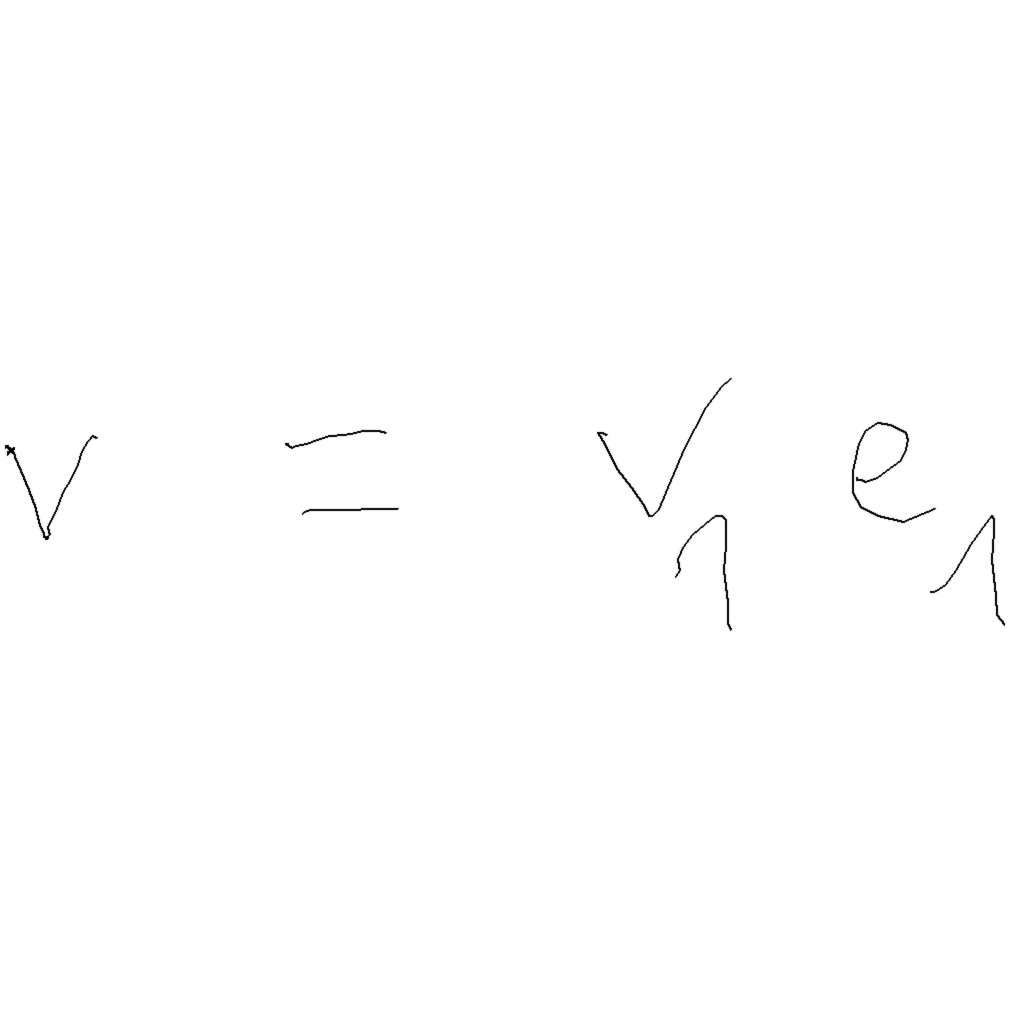 v = v₁ e₁